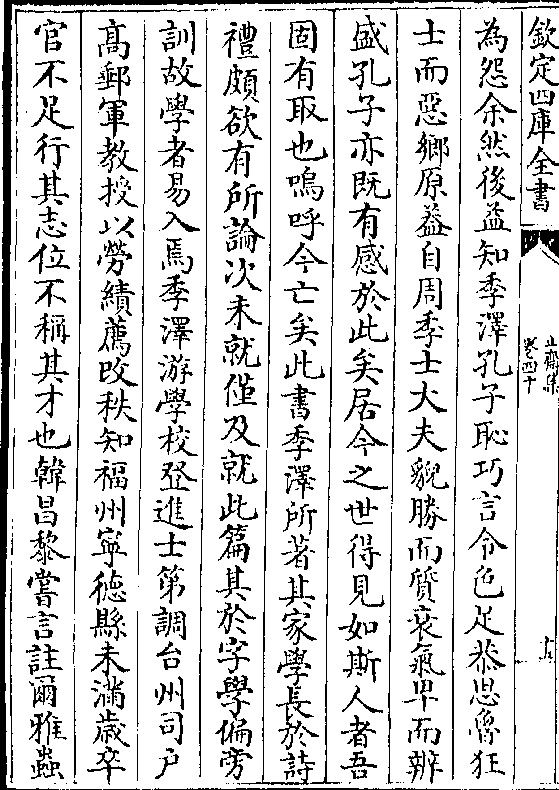 欽定四庫全書
止齋集
卷四十
為怨余然後益知季澤孔子恥巧言令色足恭思魯狂
士而惡鄉原益自周季士大夫貌勝而質衰氣卑而辨
盛孔子亦既有感於此矣居今之世得見如斯人者吾
固有取也嗚呼今亡矣此書季澤所著其家學長於詩
禮頗欲有所論次未就僅及就此篇其於字學偏旁
訓故學者易入焉季澤游學校登進士第調台州司戶
高郵軍教授以勞績薦改秩知福州寧德縣未滿歲卒
官不足行其志位不稱其才也韓昌黎嘗言註爾雅蟲